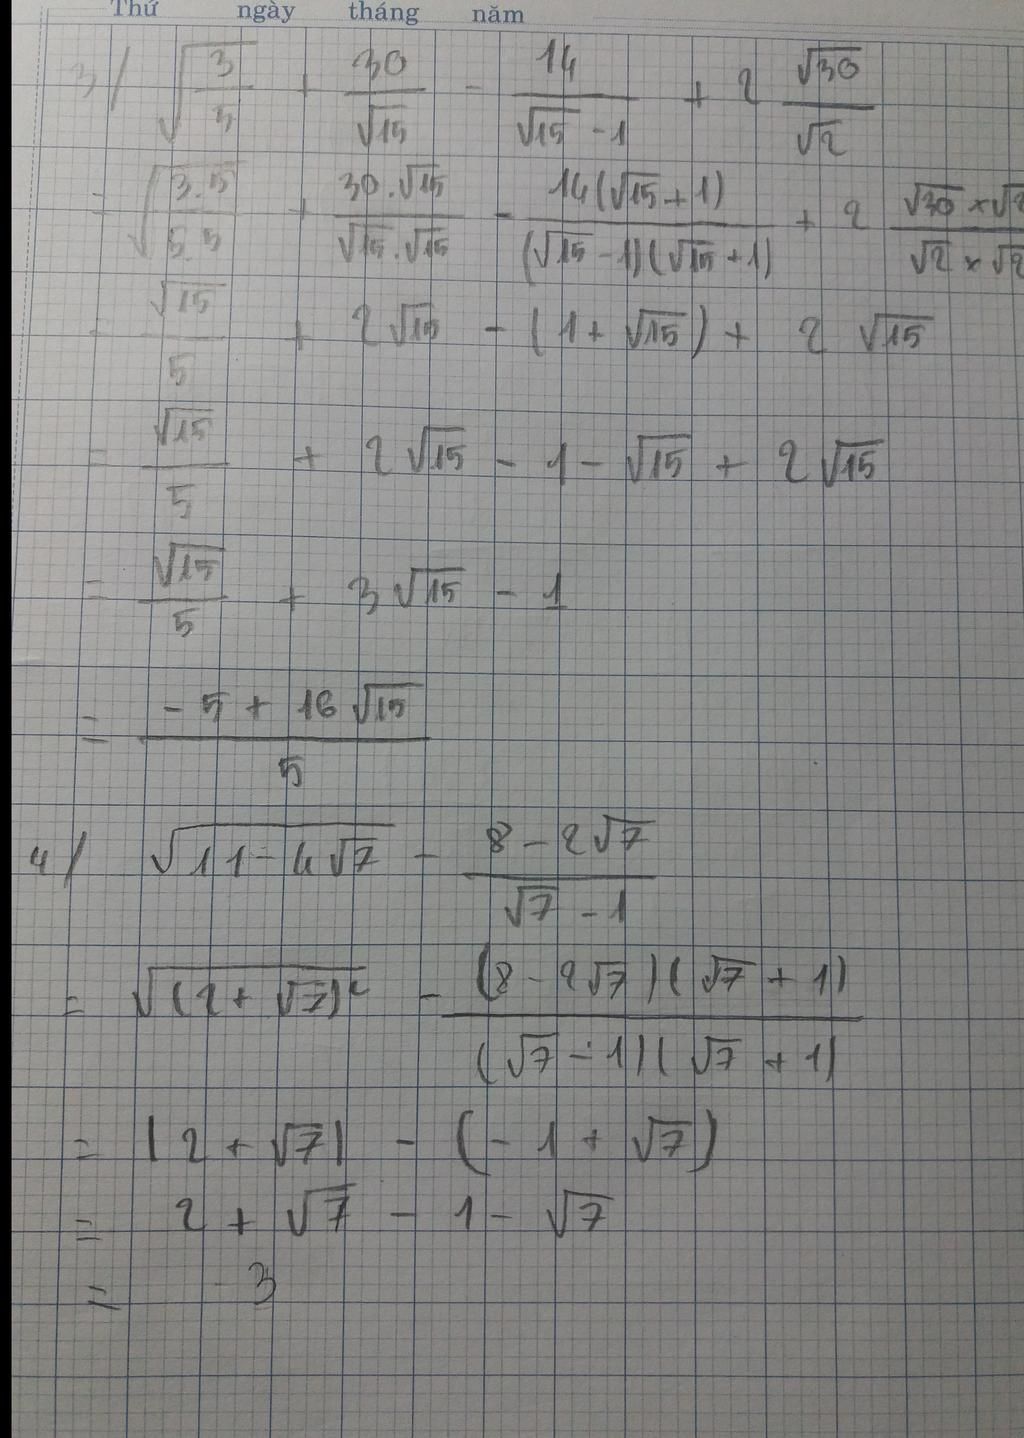 Thứ ngày tháng năm
3/ √(3/5) + 30/√15 - 14/(√15 - 1) + 2 √30/√2
= √((3.5)/(5.5)) + (30.√15)/(√15.√15) - 14(√15 + 1)/((√15 - 1)(√15 + 1)) + 2 (√30 × √2)/(√2 × √2)
= √15/5 + 2√15 - (1 + √15) + 2 √15
= √15/5 + 2√15 - 1 - √15 + 2√15
= √15/5 + 3√15 - 1
= (-5 + 16√15)/5
4/ √(11 - 4√7) - (8 - 2√7)/(√7 - 1)
= √((2 + √7)²) - ((8 - 2√7)(√7 + 1))/((√7 - 1)(√7 + 1))
= |2 + √7| - (-1 + √7)
= 2 + √7 - 1 - √7
= 3